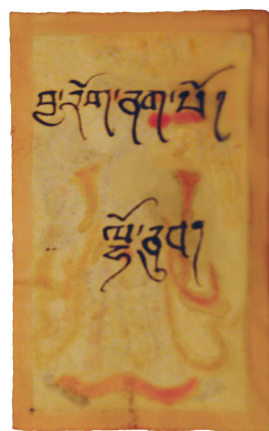 བྱ་རོག་ནག་པོ།
ལྷོ་ནུབ།